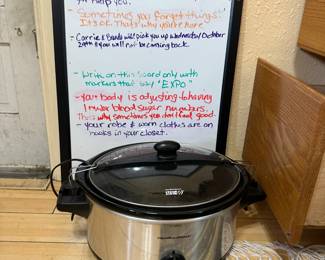 help you.
- Sometimes you forget things.
It's ok. That's why you're here
- Carrie & Brads will pick you up Wednesday October
29th & you will not be coming back.
- Write on this board only with
markers that say "EXPO"
- Your body is adjusting to having
blood sugar numbers.
That's why sometimes you don't feel good.
- your robe & worn clothes are on
hooks in your closet.